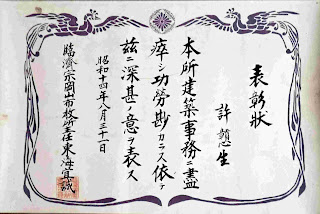 表彰狀
許憩生
本所建築事務ニ盡
瘁シ功勞尠カラス依テ
茲ニ深甚ノ意ヲ表ス
昭和十四年八月三十一日
臨濟宗岡山布教所主任東海宜誠